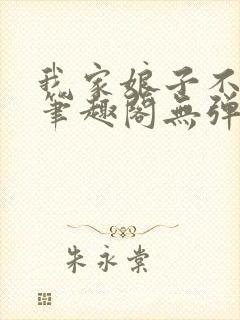 我家娘子不
筆趣閣無弹
朱永棠